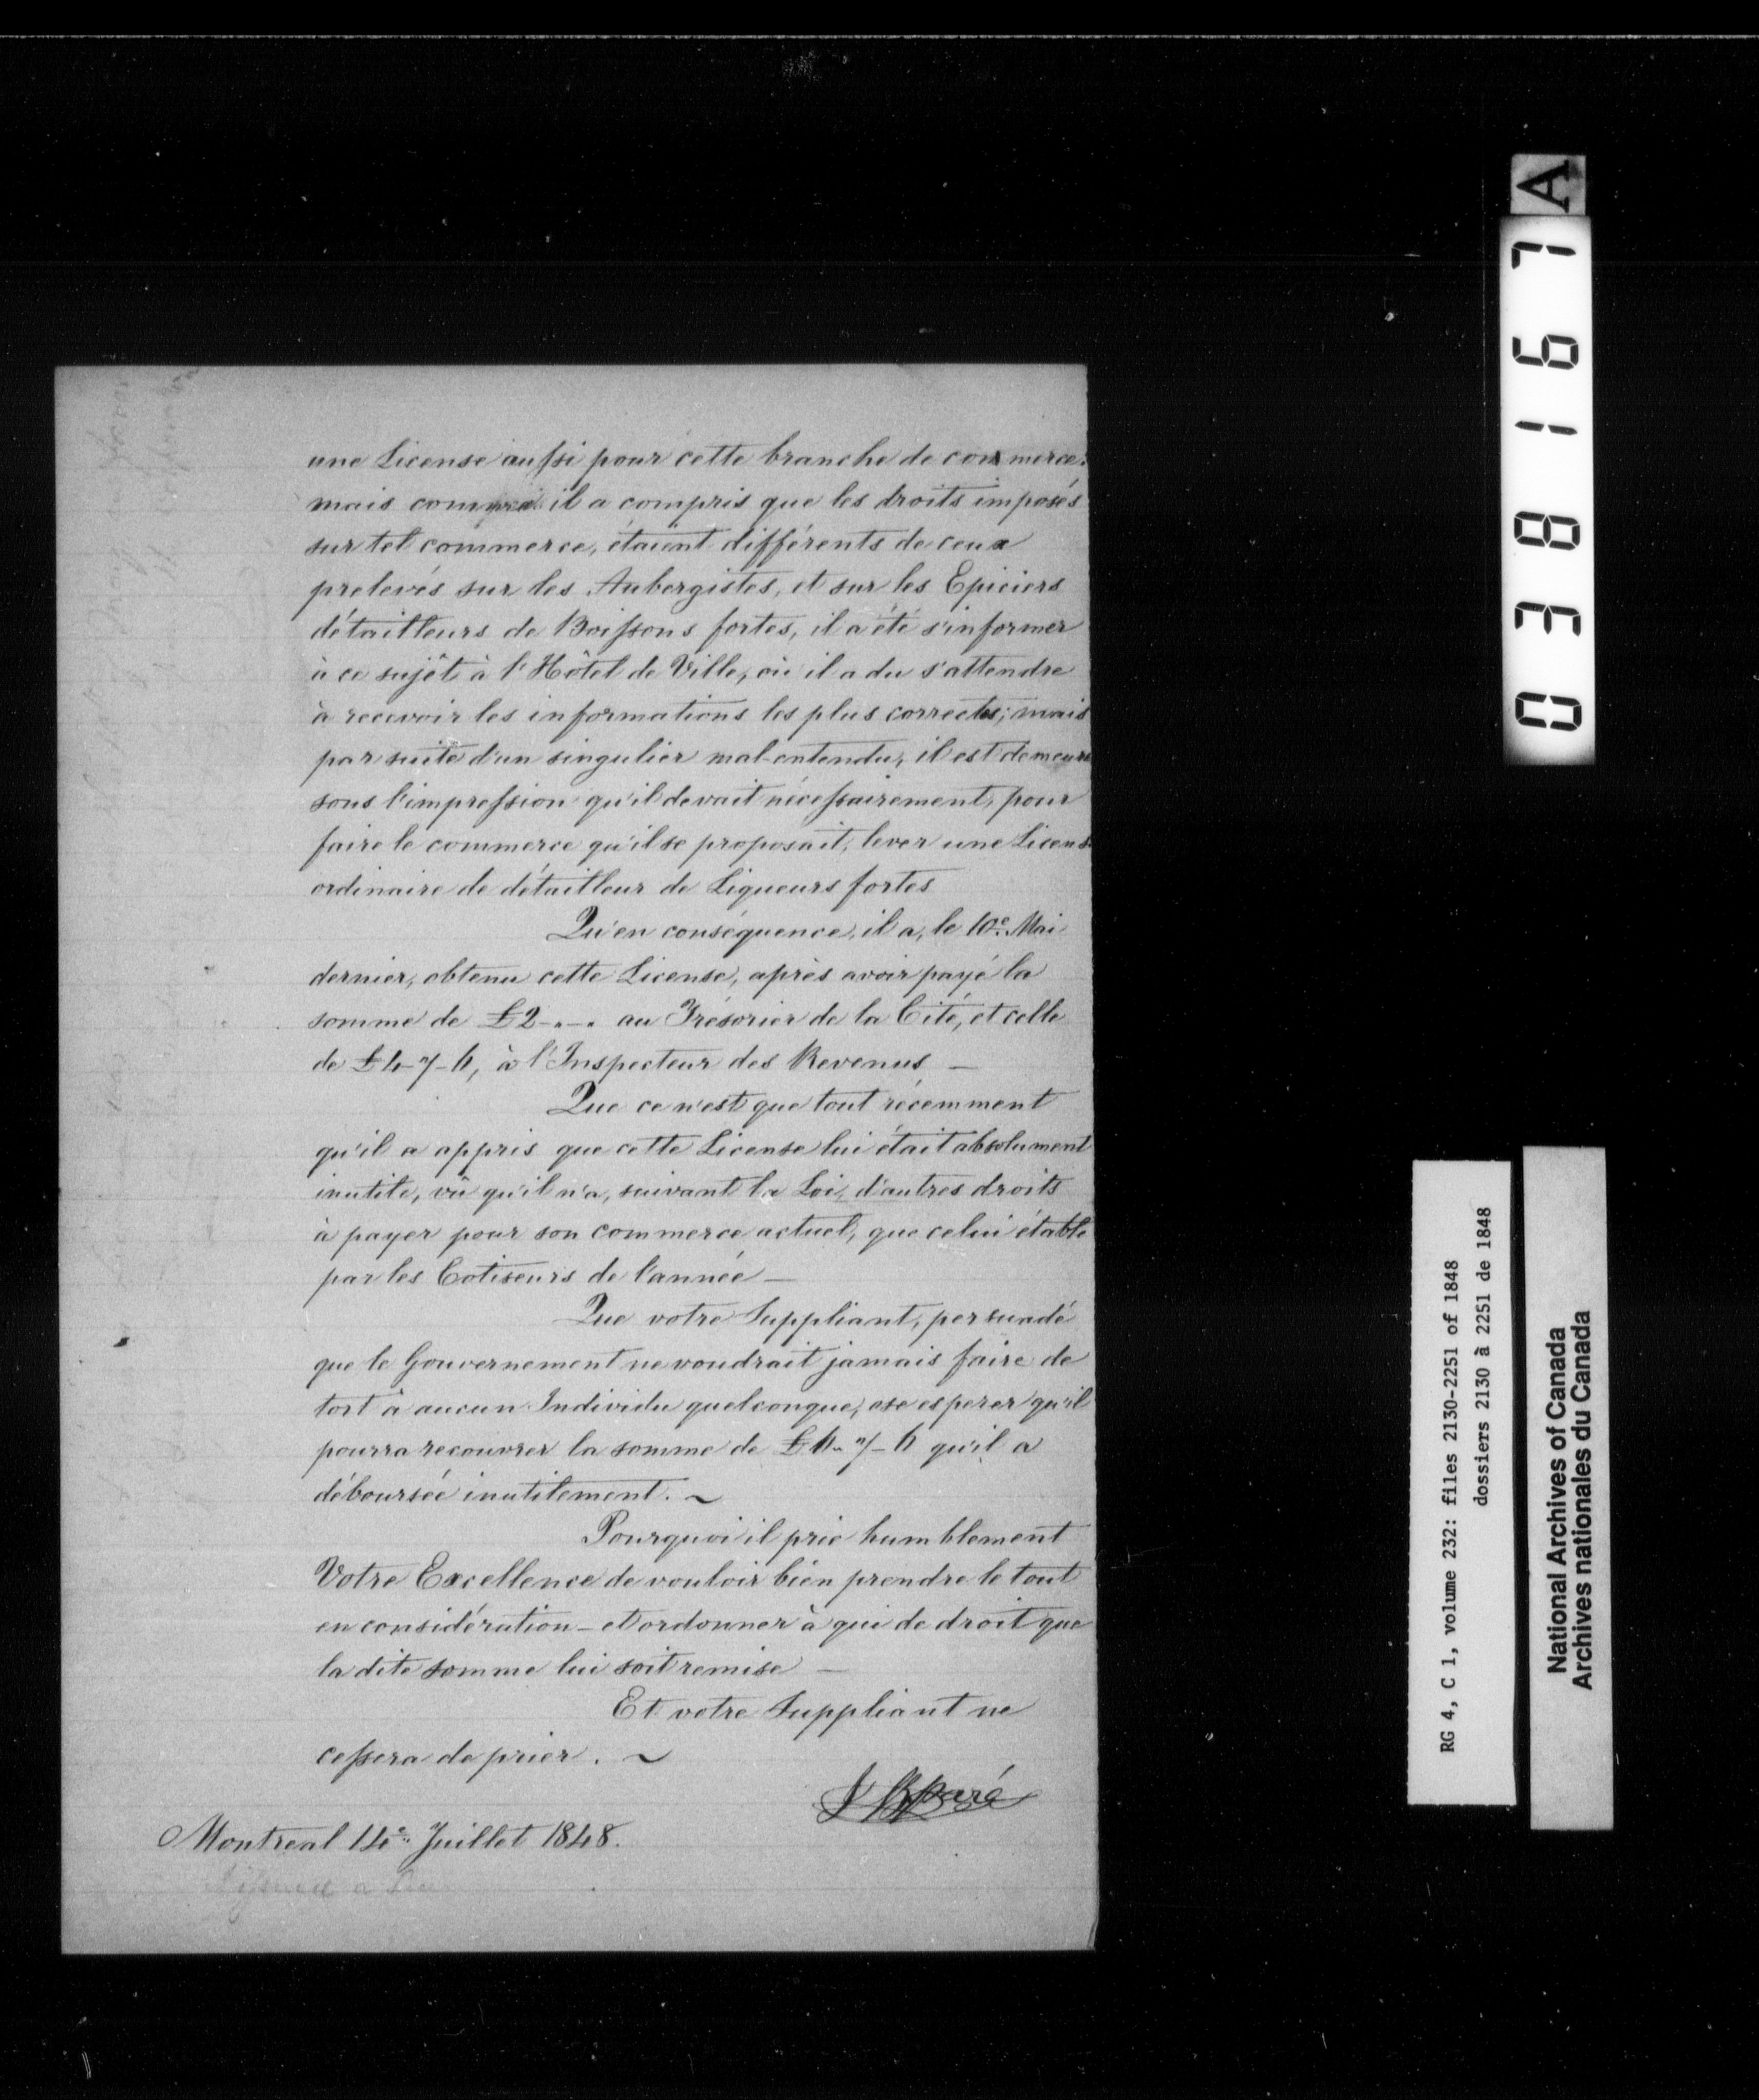 une License aussi pour cette branche de commerce:
mais comme il a compris que les droits imposés
sur tel commerce, étaient différents de ceux
prelevés sur les Aubergistes, et sur les Epiciers
détailleurs de Boissons fortes, il a été s'informer
à ce sujêt à l'Hôtel de Ville, où il a du s'attendre
à recevoir les informations les plus correctes; mais
par suite d'un singulier mal-entendu, il est demeuré
sous l'impression qu'il devait nécessairement, pour
faire le commerce qu'il se proposait, lever une Licens
ordinaire de détailleur de Liqueurs fortes
Qu'en conséquence, il a, le 10e Mai
dernier, obtenu cette License, après avoir payé la
somme de £2-"-" au Trésorier de la Cité, et celle
de à l'Inspecteur des Revenus —
Que ce n'est que tout récemment
qu'il a appris que cette License lui était absolument
inutile, vû qu'il n'a, suivant la Loi, d'autres droits
à payer pour son commerce actuel, que celui établi
par les Cotiseurs de l'année —
Que votre Suppliant, persuadé
que le Gouvernement ne voudrait jamais faire de
tort à aucun Individu quelconque, ose esperer qu'il
pourra recouvrer la somme de qu'il a
déboursée inutilement. ~
Pourquoi il prie humblement
Votre Excellence de vouloir bien prendre le tout
en considération — et ordonner à qui de droit que
la dite somme lui soit remise —
Et votre Suppliant ne
cessera de prier. ~
Paré
Montreal 14e Juillet 1848.
038167 A
RG 4, C 1, volume 232: files 2130-2251 of 1848
dossiers 2130 à 2251 de 1848
National Archives of Canada
Archives nationales du Canada